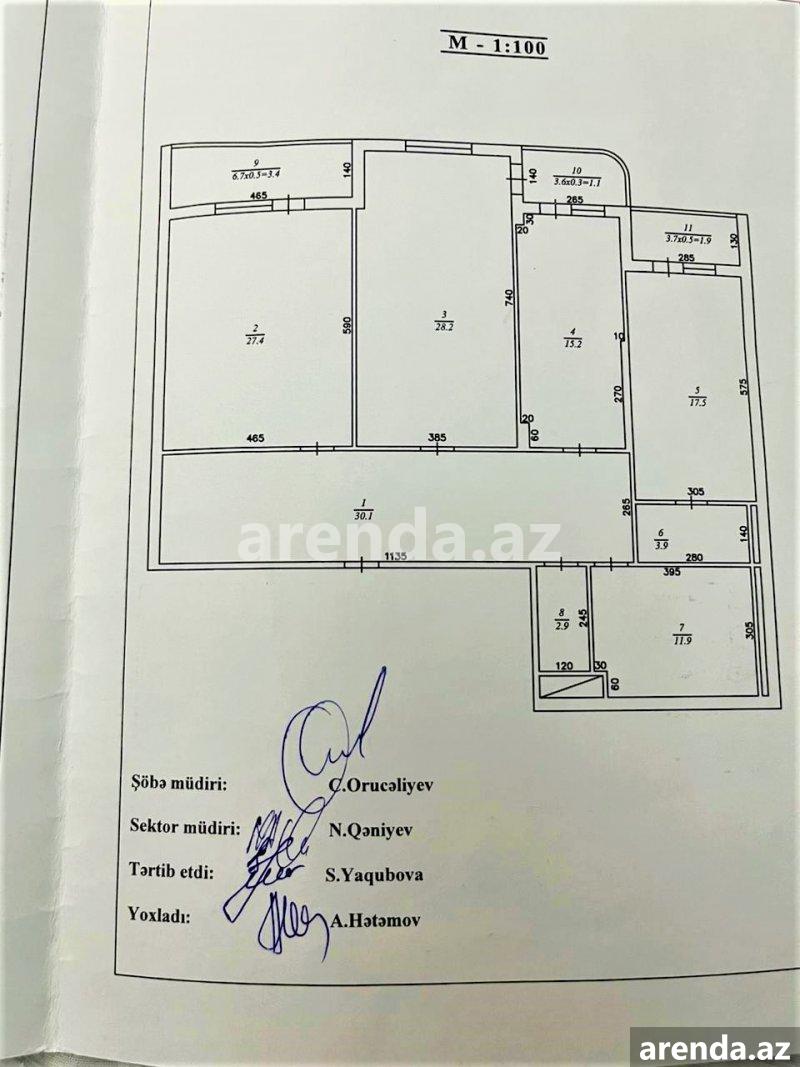 M - 1:100
9
6.7x0.5=3.4
140
465
10
3.6x0.3=1.1
140
265
11
3.7x0.5=1.9
130
285
2
27.4
590
465
3
28.2
740
385
20
30
4
15.2
10
270
20
60
5
17.5
575
305
1
30.1
265
1135
6
3.9
140
280
395
8
2.9
245
120
7
11.9
305
30
60
arenda.az
Şöbə müdiri: C.Orucəliyev
Sektor müdiri: N.Qəniyev
Tərtib etdi: S.Yaqubova
Yoxladı: A.Hətəmov
arenda.az